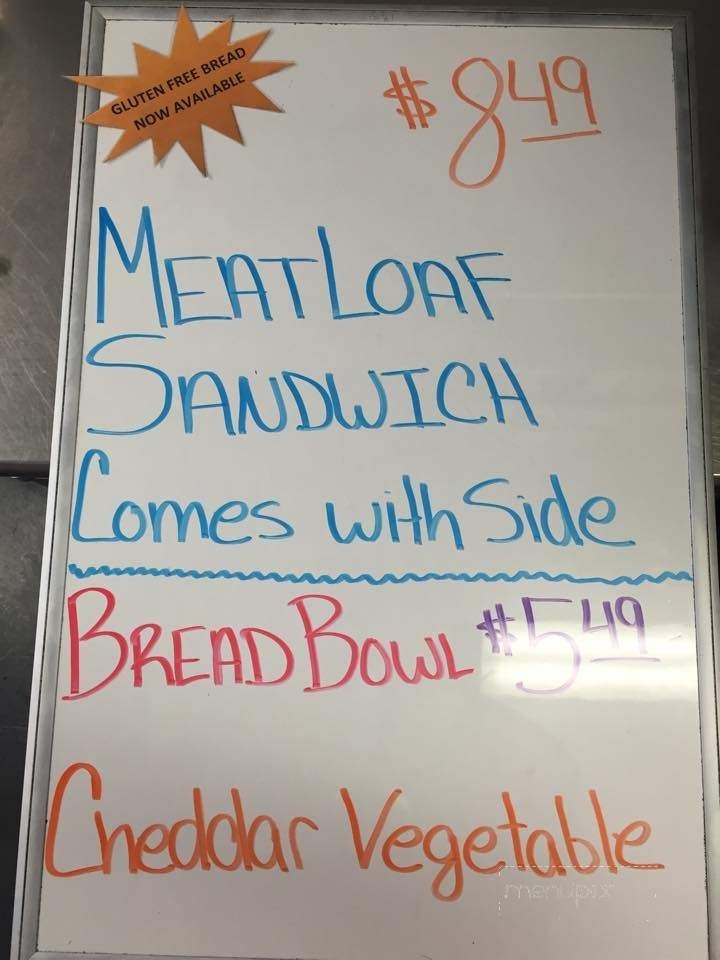 GLUTEN FREE BREAD
NOW AVAILABLE
$8.49
MEATLOAF
SANDWICH
Comes with Side
BREAD BOWL $5.49
Cheddar Vegetable
menupix